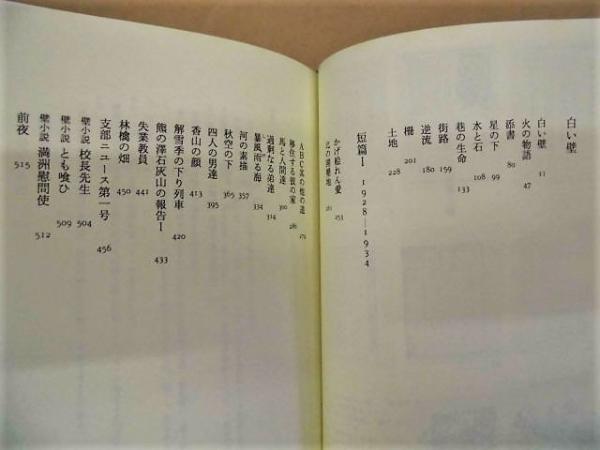 白い壁
白い壁 11
火の物語 47
添書 80
星の下 99
水と石 108
巷の生命 133
街路 159
逆流 180
柵 201
土地 228
短篇Ⅰ 1928—1934
かげ絵れん愛 253
北の開墾地 261
ABC其の他の道 272
移住する狼の家 286
馬と人間達 300
過剰なる弟達 314
暴風雨る海 334
河の素描 357
秋空の下 365
四人の男達 395
香山の顔 413
解雪季の下り列車 420
熊の澤石灰山の報告Ⅰ 433
失業教員 441
林檎の畑 450
支部ニュース第一号 456
壁小説 校長先生 504
壁小説 とも喰ひ 509
壁小説 満洲慰問使 512
前夜 515